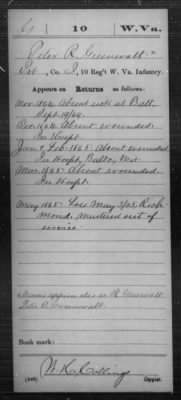 G | 10 | W.Va.
Peter R. Greenwalt *
Pvt., Co. I, 10 Reg't W. Va. Infantry.
Appears on Returns as follows:
Nov. 1864 Absent sick at Balt.
Sept. 19/64.
Dec. 1864 Absent wounded
In Hospt.
Jan. & Feb. 1865 Absent wounded
In Hospt, Balto, Md.
Mar. 1865 Absent wounded
In Hospt.
May 1865 Loss May 3/65, Rich
mond, mustered out of
service.
* Name appears also as R Greenwalt
Peter R. Greenwalt
Book mark:
W. H. Collins
(546) Copyist.